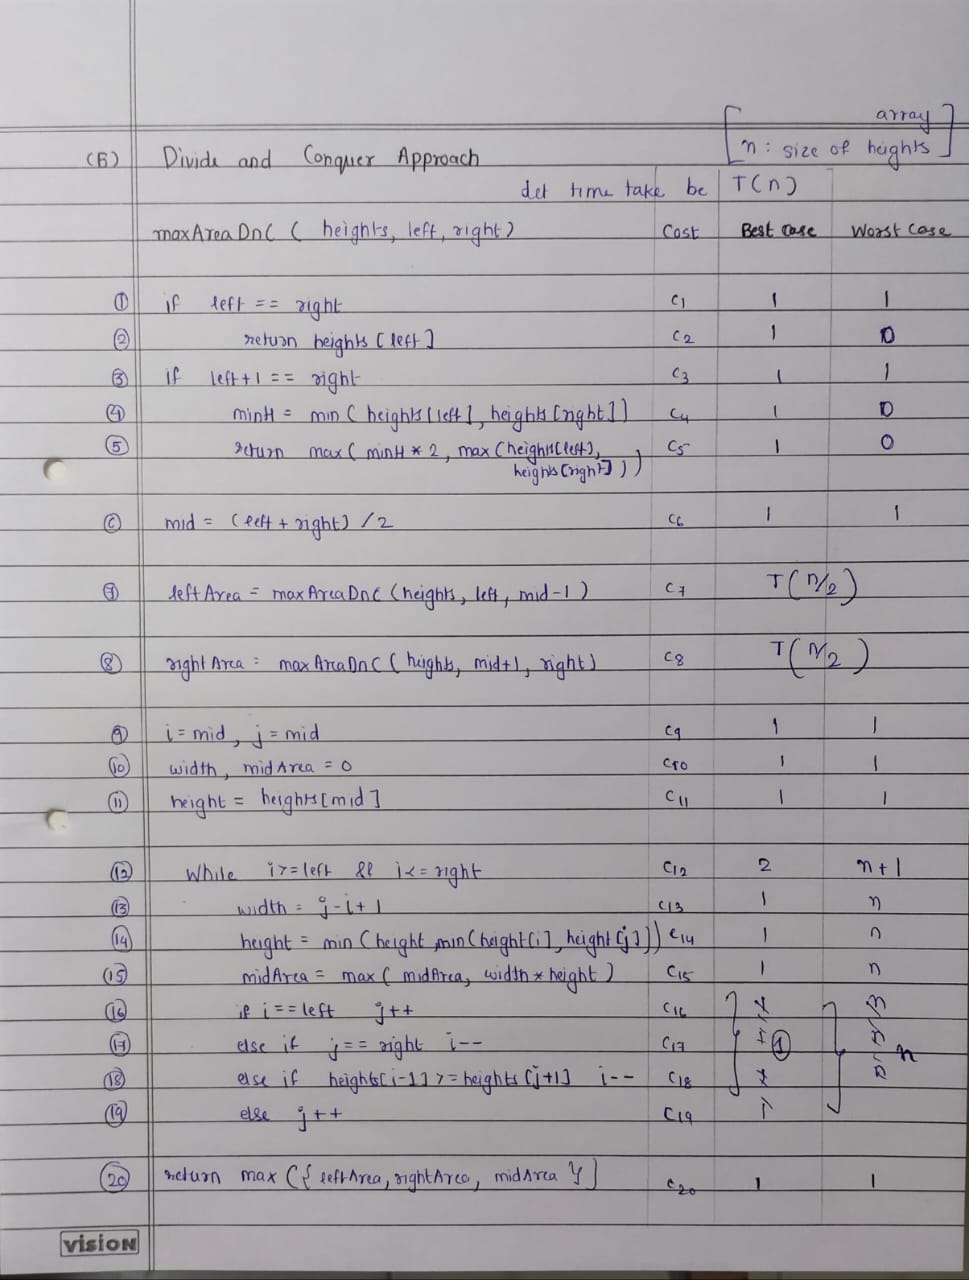 array
n : size of heights
(B) Divide and Conquer Approach
det time take be T(n)
maxAreaDnC ( heights, left, right) Cost Best Case Worst Case
① if left == right C1 1 1
② return heights [left] C2 1 0
③ if left+1 == right C3 1 1
④ minH = min ( heights[left], heights[right]) C4 1 0
⑤ return max ( minH * 2, max (heights[left], C5 1 0
heights[right]))
⑥ mid = (left + right) /2 C6 1 1
⑦ leftArea = maxAreaDnC (heights, left, mid-1) C7 T(n/2)
⑧ rightArea = maxAreaDnC ( heights, mid+1, right) C8 T(n/2)
⑨ i = mid, j = mid C9 1 1
⑩ width, midArea = 0 C10 1 1
⑪ height = heights[mid] C11 1 1
⑫ While i>=left && i<= right C12 2 n+1
⑬ width = j-i+1 C13 1 n
⑭ height = min (height, min(height[i], height[j])) C14 1 n
⑮ midArea = max ( midArea, width * height ) C15 1 n
⑯ if i == left j++ C16
⑰ else if j == right i-- C17 ① n
⑱ else if heights[i-1] >= heights[j+1] i-- C18
⑲ else j++ C19
⑳ return max ({ leftArea, rightArea, midArea }] C20 1 1
vision